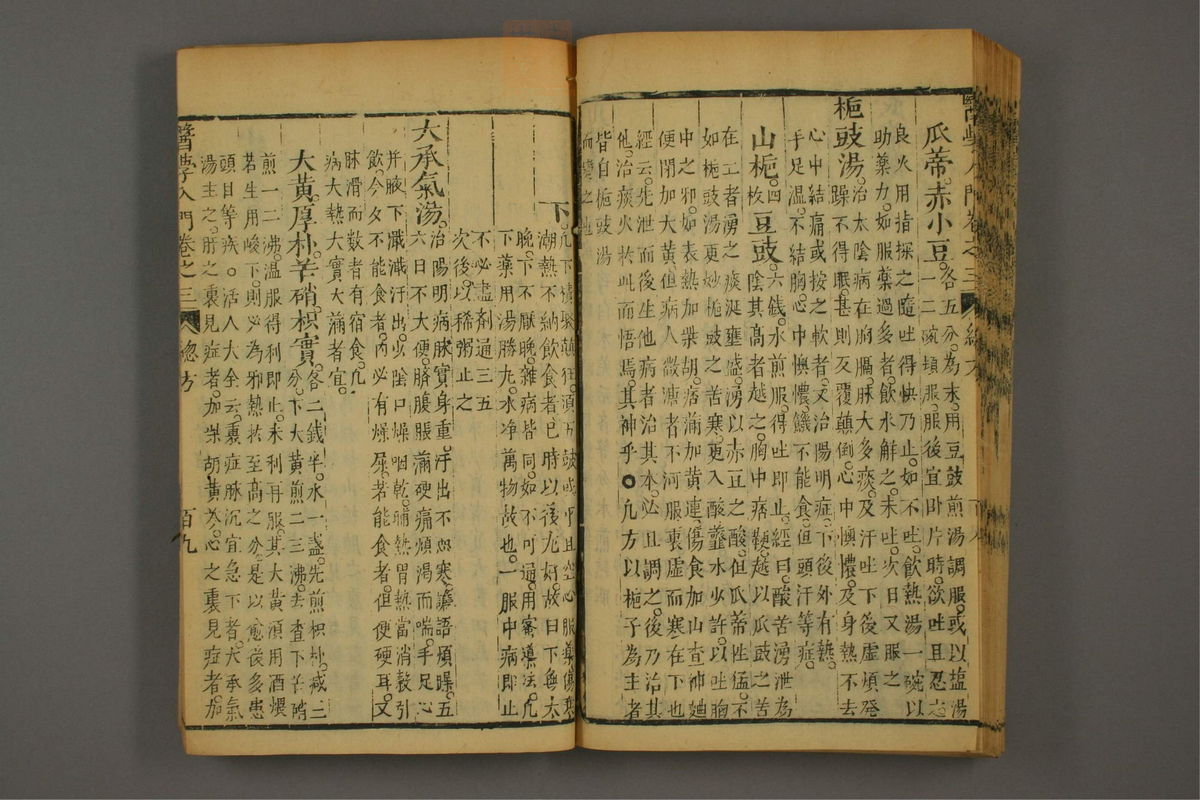 瓜蒂赤小豆各五分為末用豆豉煎湯調服或以塩湯
一二碗頓服服後宜臥片時欲吐且忍之
良火用指探之隨吐得快乃止如不吐飲熱湯一碗以
助藥力如服藥過多者飲水解之未吐次日又服之
梔豉湯治太陰病在胸膈脉大多痰及汗吐下後虛煩発
躁不得眠甚則反覆顛倒心中懊憹及身熱不去
心中結痛或按之軟者又治陽明症下後外有熱
手足温不結胸心中懊憹饑不能食但頭汗等症
山梔四枚豆豉六錢水煎服得吐即止經曰酸苦湧泄為
陰其高者越之胸中痞鞕越以瓜豉之苦
在工者湧之痰涎壅盛湧以赤豆之酸但瓜蒂性猛不
如梔豉湯更妙梔豉之苦寒更入酸虀水少許以吐胸
中之邪如表熱加柴胡痞滿加黃連傷食加山查神麯
便閉加大黃但病人微溏者不可服裏虛而寒在下也
經云先泄而後生他病者治其本必且調之後乃治其
他治痰火扵此而悟焉其神乎○凡方以梔子為主者
皆自梔豉湯
而變之也
下
潮熱不納飲食者巳時以後尤好故曰下無太
晚下不厭晚雜病皆同如不可通用審導法凡
下藥用湯勝丸水净萬物故也一服中病即止
不必盡劑通三五
次後以稀粥止之
大承氣湯治陽明病脉實身重汗出不恶寒譫語煩躁五
六日不大便臍腹脹滿硬痛煩渴而喘手足心
并腋下濈濈汗出少陰口燥咽乾晡熱胃熱當消穀引
飲今反不能食者內必有燥屎若能食者但便硬耳又
脉滑而數者有宿食凡
病大熱大實大滿者宜
大黃厚朴芒硝枳實各二錢半水一盞先煎枳朴減三
分下大黃煎二三沸去查下芒硝
煎一二沸温服得利即止未利再服其大黃須用酒煨
若生用峻下則必為邪熱扵至高之分是以愈後多患
頭目等疾○活人大全云裏症脉沉宜急下者大承氣
湯主之肝之裏見症者加柴胡黃芩心之裏見症者加
醫學入門卷之三
總方
百九